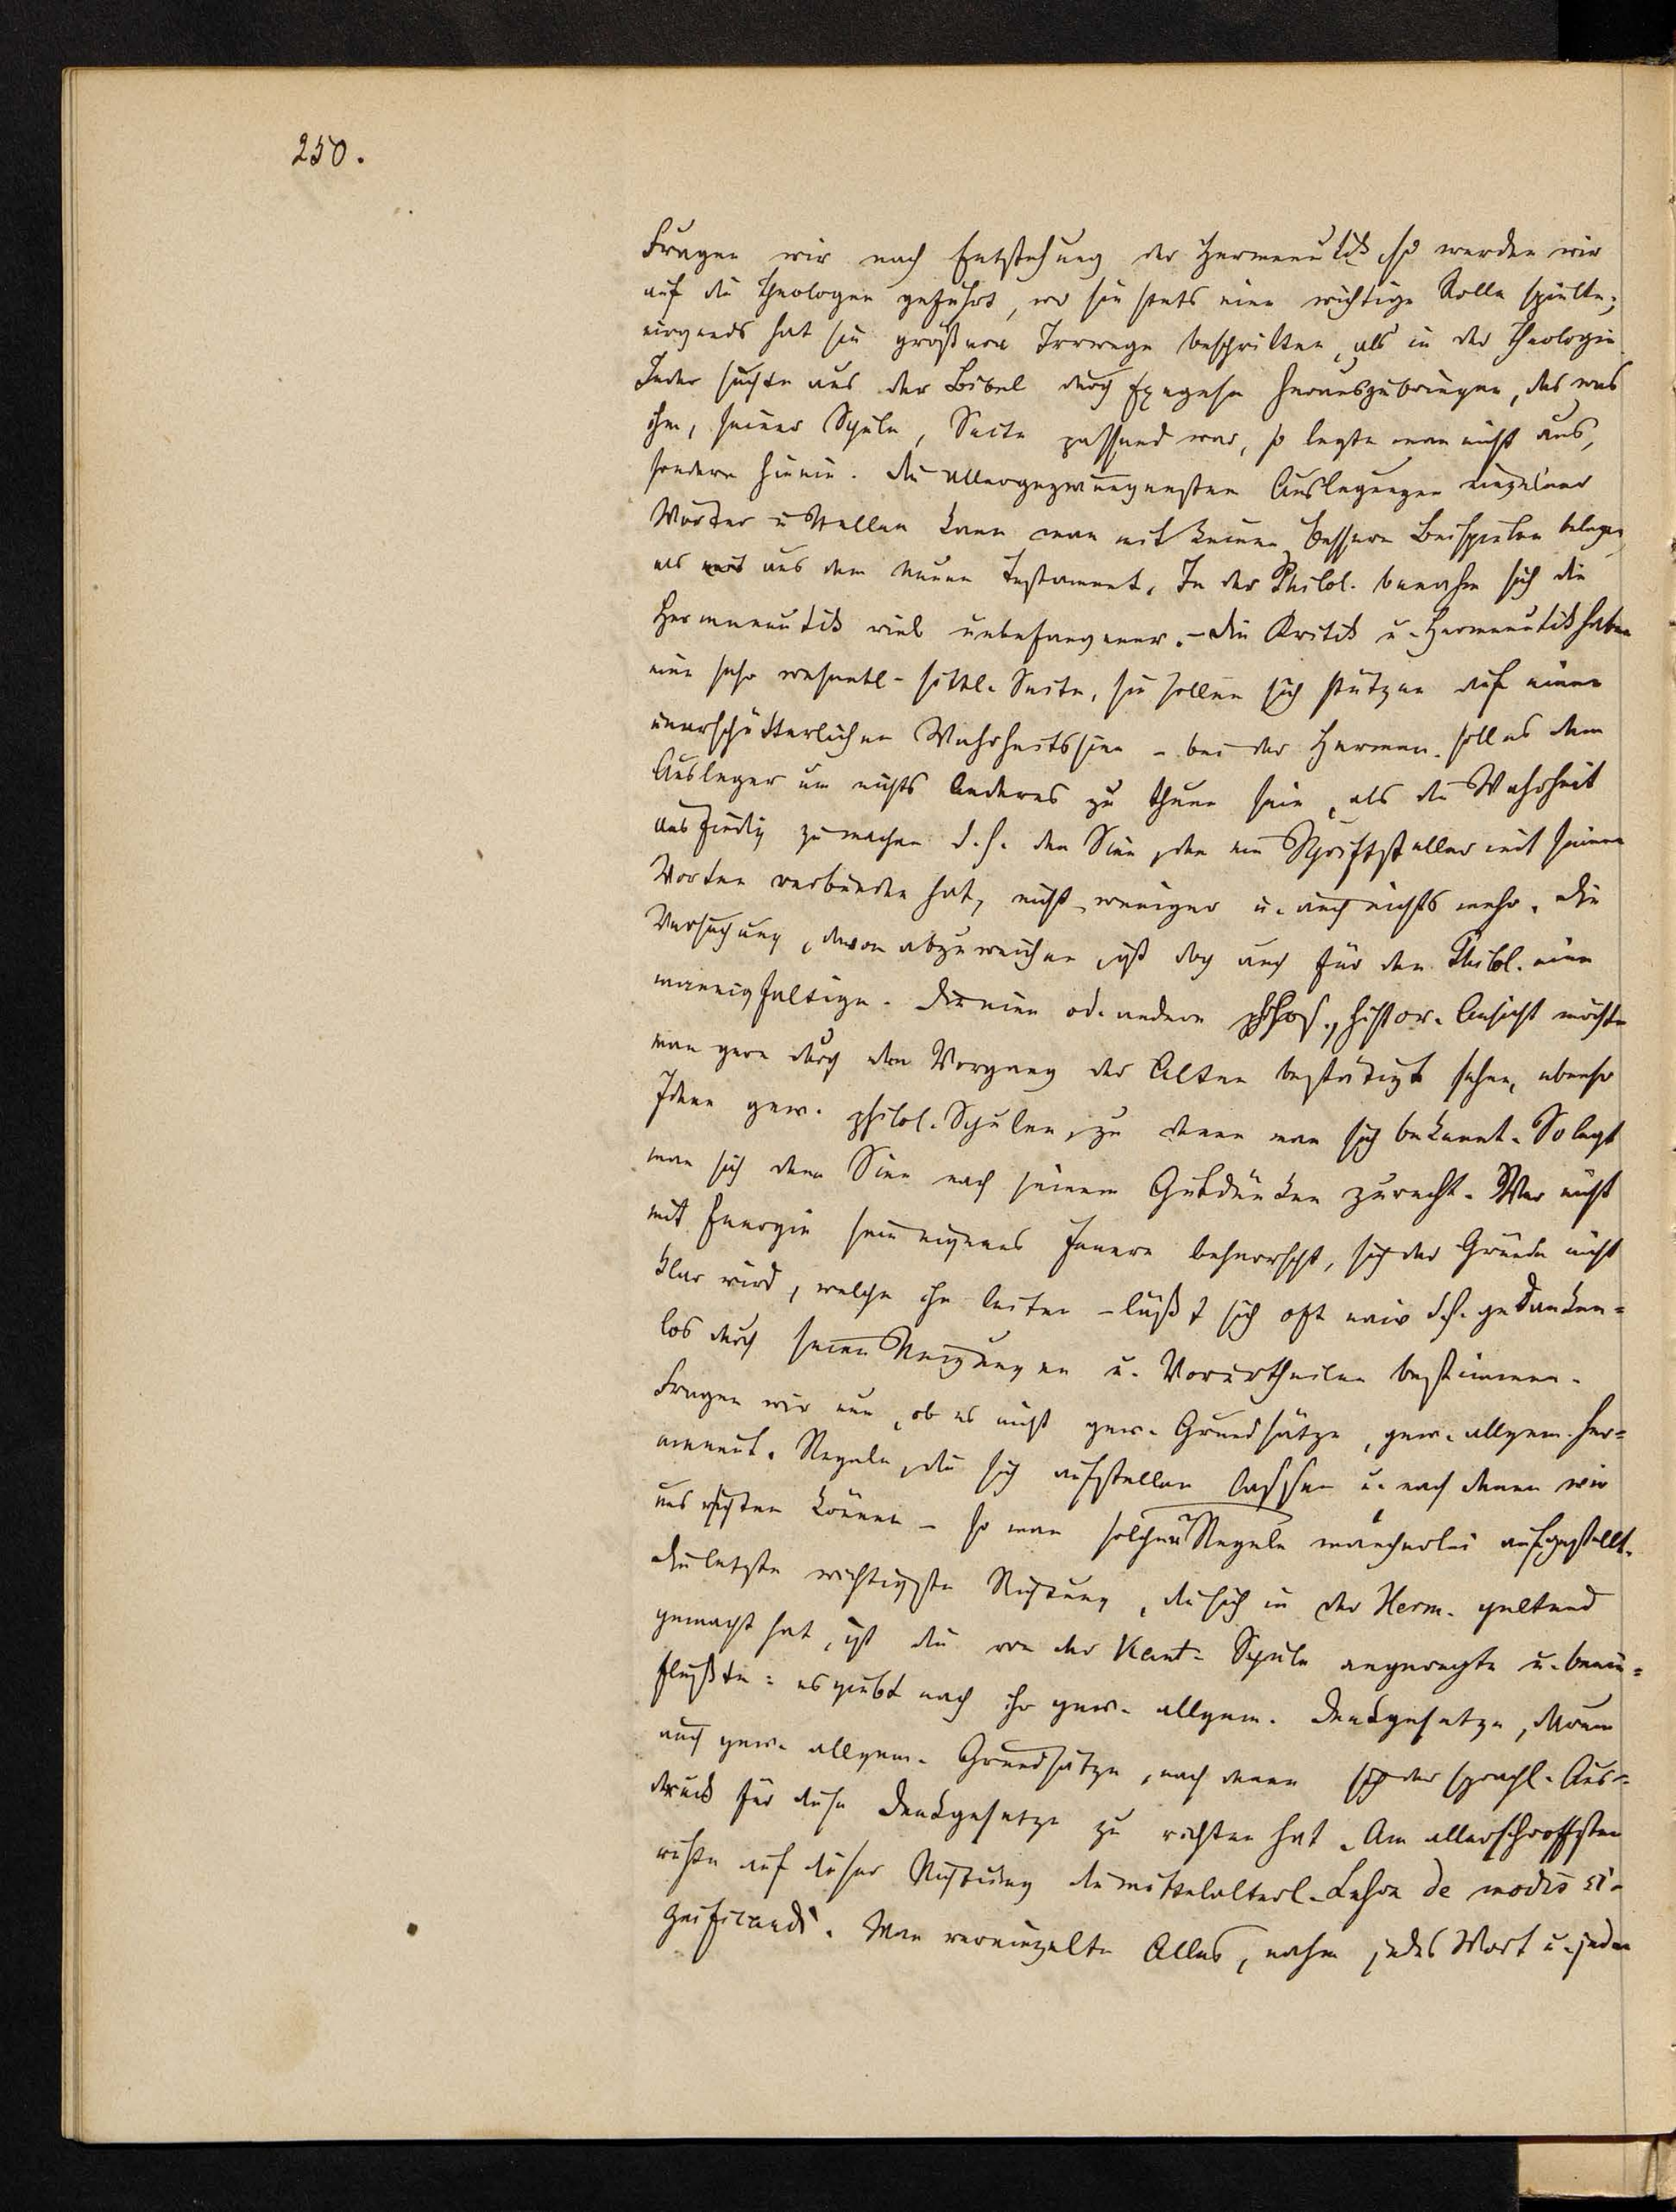 250.
Fragen wir nach Entstehung der Hermeneutik, so werden wir
auf die Theologen geführt, wo sie stets eine wichtige Rolle spielte;
nirgends hat sie größere Irrwege beschritten, als in der Theologie.
Jeder suchte aus der Bibel durch Exegese herauszubringen, das was
ihm, seiner Schule, Secte passend war, so legte man nicht aus,
sondern hinein. Die allergezwungensten Auslegungen einzelner
Wörter u Stellen kann man mit keinen bessern Beispielen belegen,
als aus dem neuen Testament. In der Philol. benahm sich die
Hermeneutik viel unbefangener. – Die Kritik u. Hermeneutik haben
eine sehr wesentl. sittl. Seite, sie sollen sich stützen auf einen
unerschütterlichen Wahrheitssinn – bei der Hermen. soll es dem
Ausleger um nichts Anderes zu thun sein, als die Wahrheit
ausfindig zu machen d. h. den Sinn, den ein Schriftsteller mit seinen
Worten verbunden hat, nicht weniger u. auch nichts mehr. Die
Versuchung, davon abzuweichen, ist doch auch für den Philol. eine
mannigfaltige. Die eine od. andere philos., histor. Ansicht möchte
man gern durch den Vorgang der Alten bestätigt sehen, ebenso
Ideen gew. philol. Schulen, zu denen man sich bekennt. So legt
man sich den Sinn nach seinem Gutdünken zurecht. Wer nicht
mit Energie sein eigenes Innere beherrscht, sich der Gründe nicht
klar wird, welche ihn leiten – läßt sich oft naiv d. h. gedanken=
los durch seine Neigungen u. Vorurtheilen bestimmen.
Fragen wir nun, ob es nicht gew. Grundsätze, gew. allgem. her=
meneut. Regeln, die sich aufstellen lassen u. nach denen wir
uns richten können – so man solcher Regeln mancherlei aufgestellt.
Die letzte wichtigste Richtung, die sich in der Herm. geltend
gemacht hat, ist die von der Kant. Schule angeregte u. beein=
flußte: es giebt nach ihr gew. allgem. Denkgesetze, darum
auch gew. allgem. Grundsätze, nach denen sich der sprachl. Aus=
druck für diese Denkgesetze zu richten hat. Am allerschroffsten
ruhte auf dieser Richtung die mittelalterl. Lehre de modis si=
gnificandi. Man vereinzelte Alles, nahm jedes Wort u. jeden